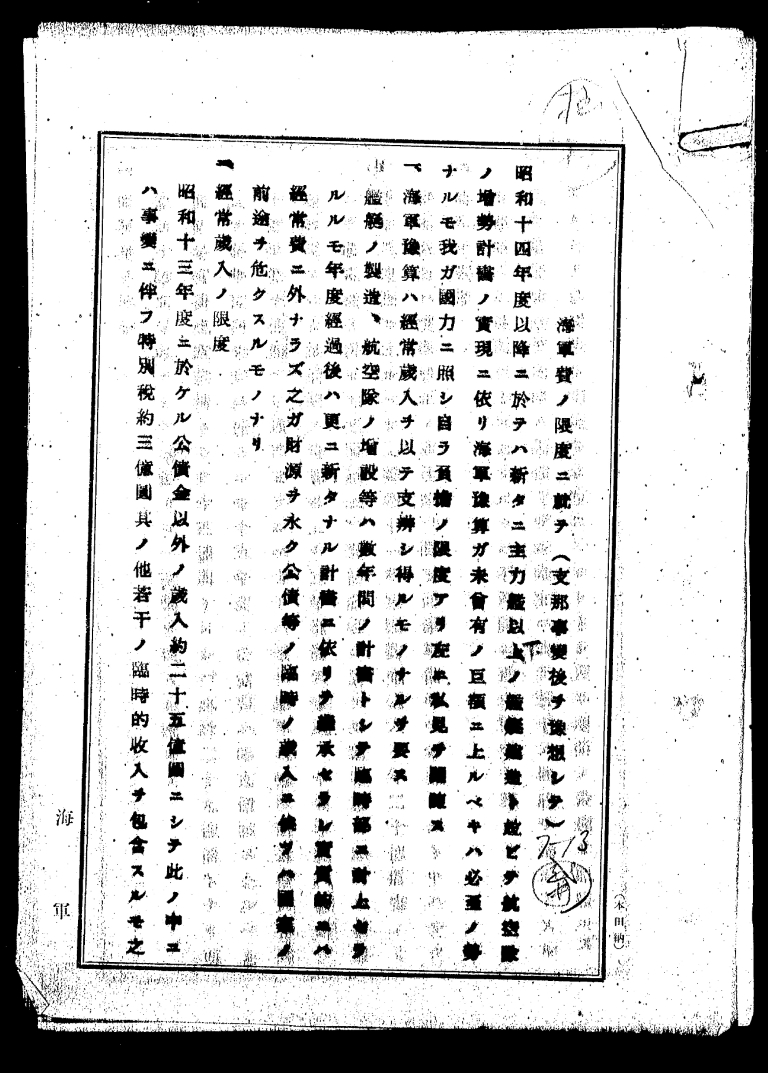 海軍費ノ限度ニ就テ（支那事變後ヲ豫想シテ）
昭和十四年度以降ニ於テハ新タニ主力艦以下ノ艦艇建造ト竝ビテ航空隊
ノ增勢計畫ノ實現ニ依リ海軍豫算ガ未曾有ノ巨額ニ上ルベキハ必至ノ勢
ナルモ我ガ國力ニ照シ自ラ負擔ノ限度アリ左ニ私見ヲ開陳ス
一、海軍豫算ハ經常歲入ヲ以テ支辨シ得ルモノナルヲ要ス
艦艇ノ製造、航空隊ノ增設等ハ數年間ノ計畫トシテ臨時部ニ計上セラ
ルルモ年度經過後ハ更ニ新タナル計畫ニ依リテ繼承セラレ實質的ニハ
經常費ニ外ナラズ之ガ財源ヲ永ク公債等ノ臨時ノ歲入ニ俟ツハ國家ノ
前途ヲ危クスルモノナリ
一、經常歲入ノ限度
昭和十三年度ニ於ケル公債金以外ノ歲入約二十五億圓ニシテ此ノ中ニ
ハ事變ニ伴フ特別稅約三億圓其ノ他若干ノ臨時的收入ヲ包含スルモ之
海軍
7-13